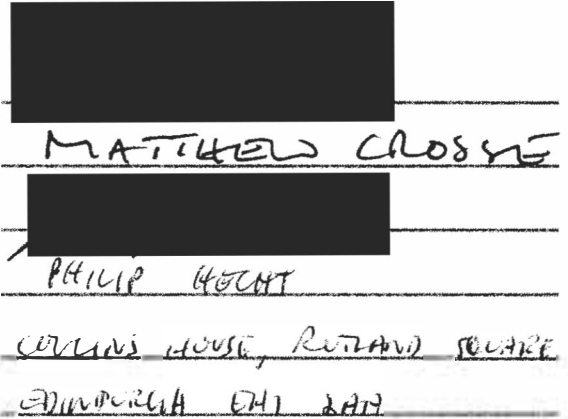 MATTHEW CROSSE
PHILIP HECHT
COLLINS HOUSE, RUTLAND SQUARE
EDINBURGH EH1 2AA